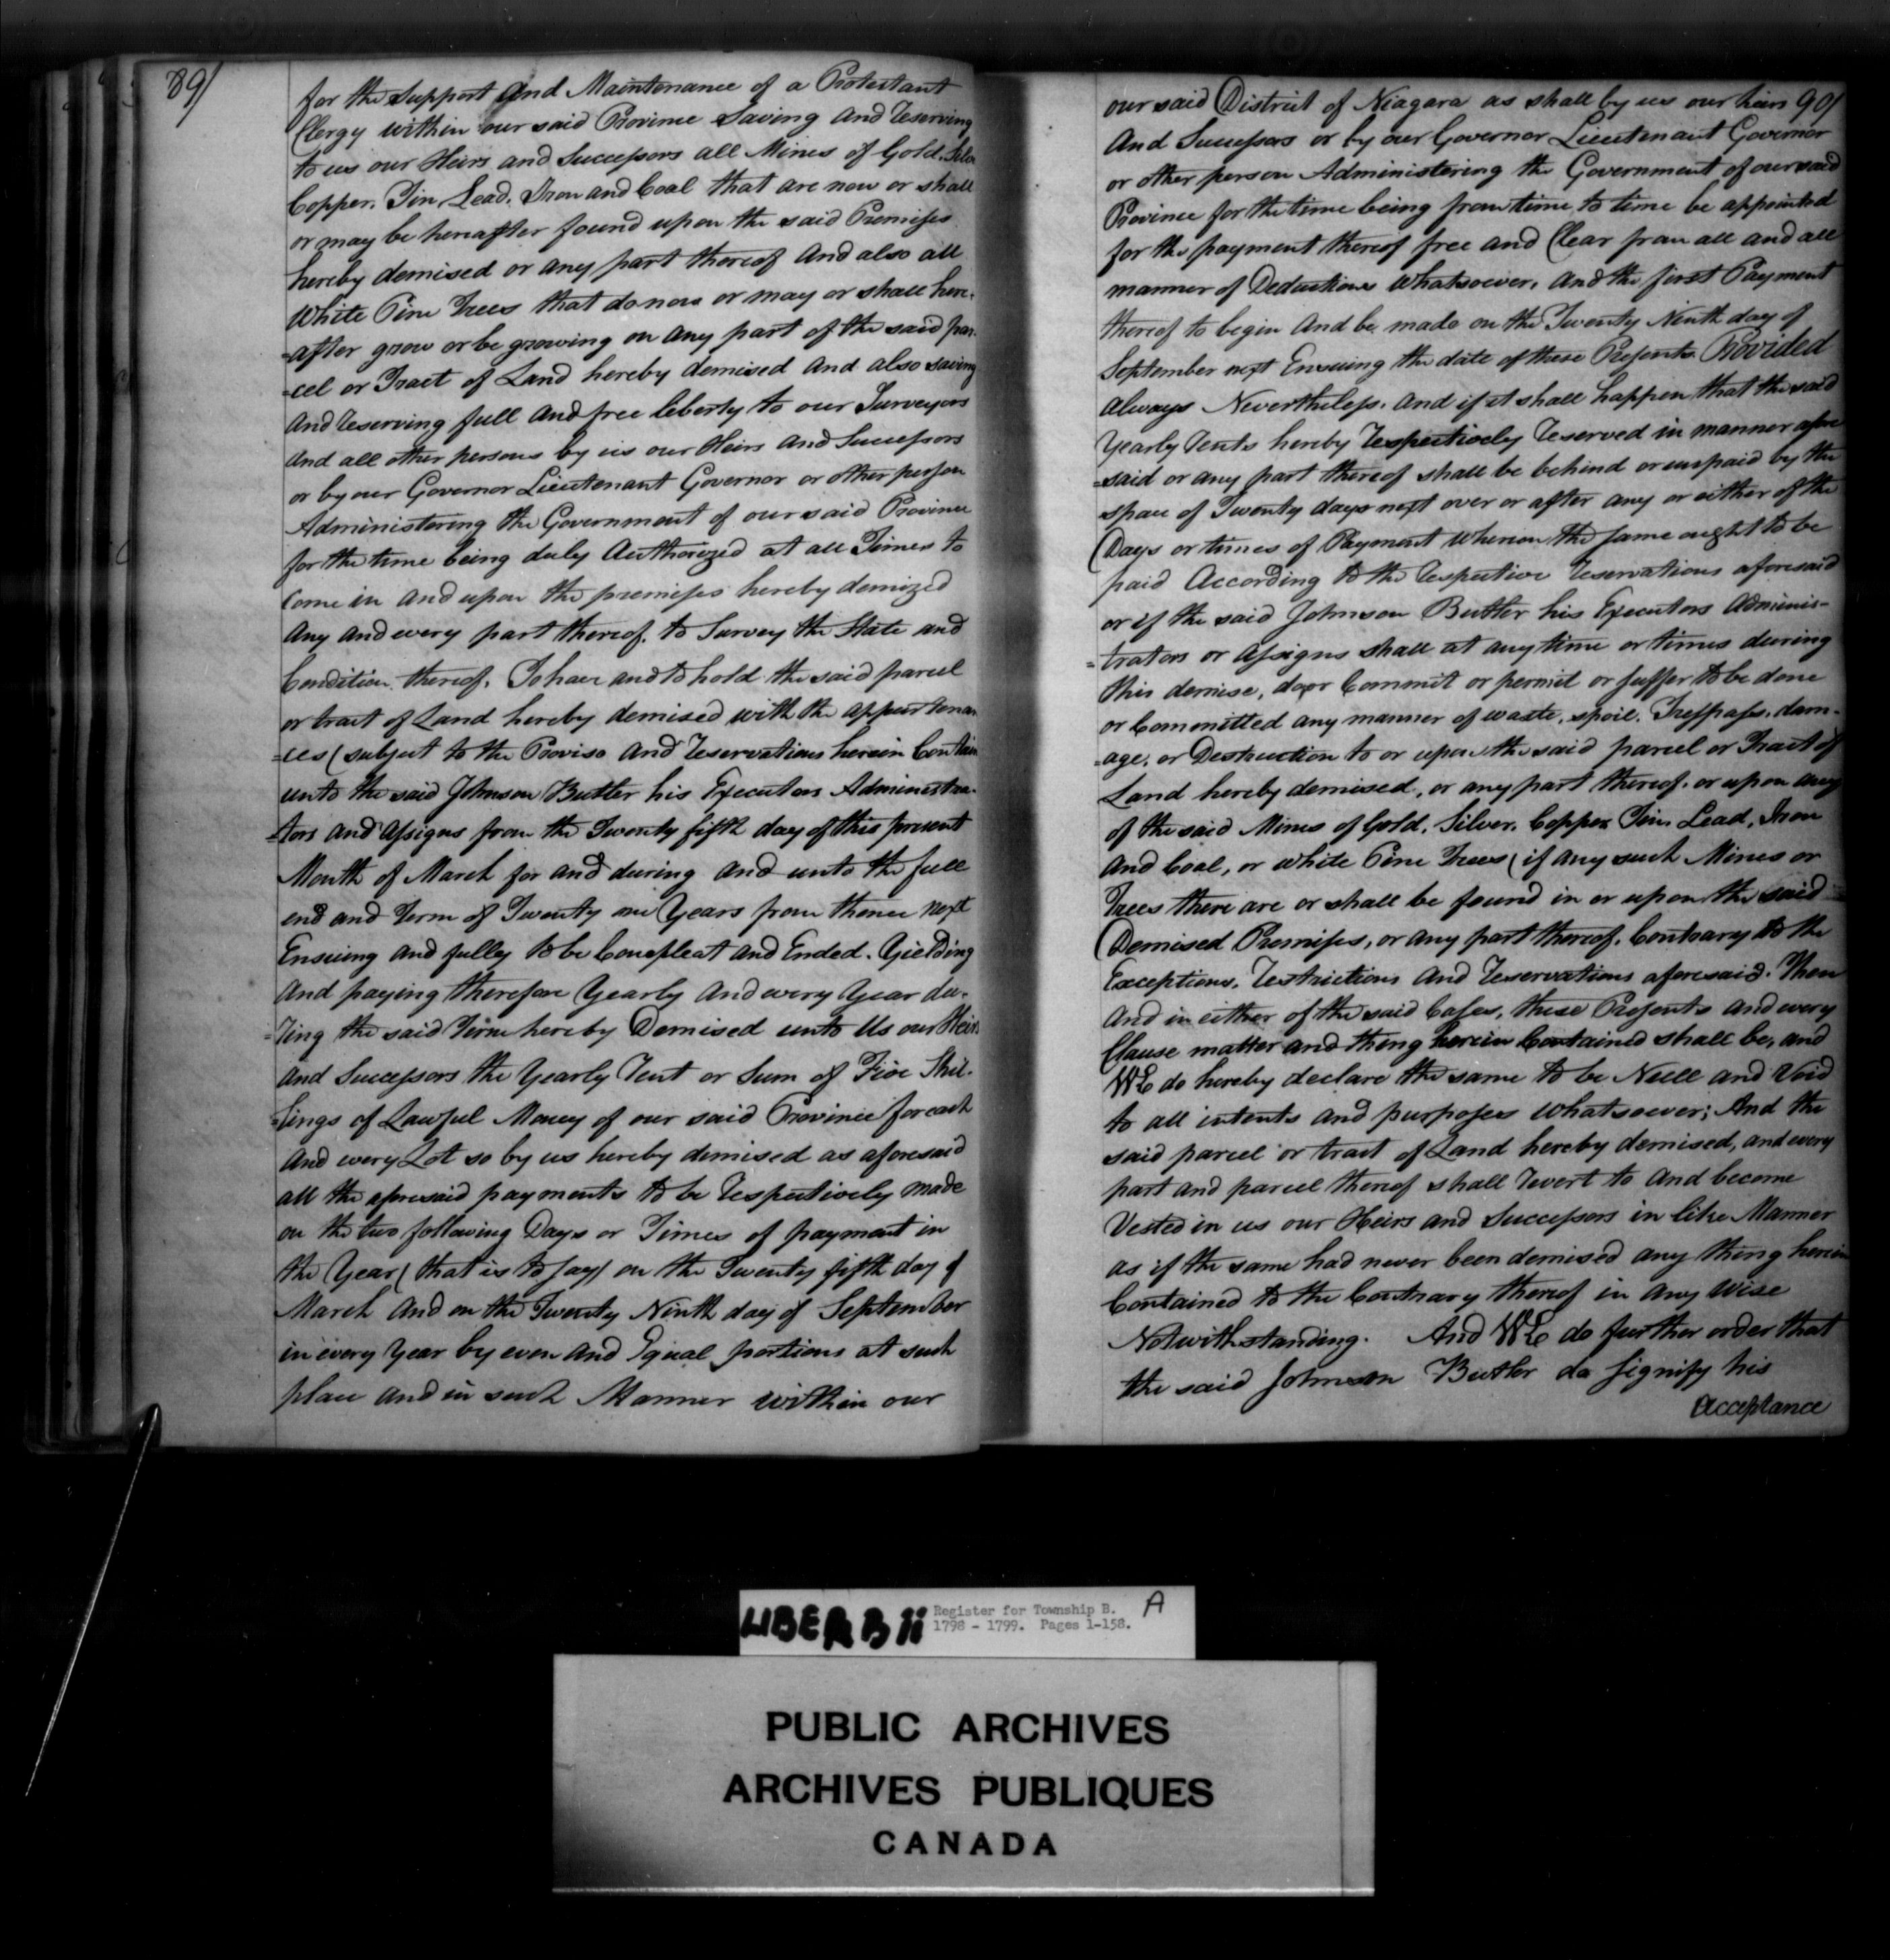 89/
for the Support And Maintenance of a Protestant
Clergy within our said Province Saving And Reserving
to us our Heirs and Successors all Mines of Gold, Silv
Copper, Tin, Lead, Iron and Coal that are now or shall
or may be hereafter found upon the said Premises
hereby demised or any part thereof And also all
White Pine Trees that do now or may or shall here-
=after grow or be growing on any part of the said par-
=cel or Tract of Land hereby demised And also saving
And Reserving full And free liberty to our Surveyors
And all other persons by us our Heirs And Successors
or by our Governor Lieutenant Governor or other person
Administering the Government of our said Province
for the time being duly Authorized at all Times to
come in And upon the premises hereby demized
Any And every part thereof, to Survey the State and
Condition thereof. To have and to hold the said parcel
or tract of Land hereby demised with the appurtenan
=ces (subject to the Proviso And Reservations herein Contain
unto the said Johnson Butler his Executors Administra-
=tors And Assigns from the Twenty fifth day of this present
Month of March for And during And unto the full
end and Term of Twenty one Years from thence next
Ensuing and fully to be Compleat and Ended. Yielding
And paying therefore Yearly And every Year du-
=ring the said Term hereby Demised unto Us our Heirs
And Successors the Yearly Rent or Sum of Five Shil-
=lings of Lawful Money of our said Province for each
And every Lot so by us hereby demised as aforesaid
all the aforesaid payments to be Respectively made
on the two following Days or Times of payment in
the Year (that is to say) on the Twenty fifth day of
March And on the Twenty Ninth day of September
in every Year by even And Equal portions at such
place And in such Manner within our
our said District of Niagara as shall by us our heirs 90/
And Successors or by our Governor Lieutenant Governor
or other person Administering the Government of our said
Province for the time being from time to time be appointed
for the payment thereof free And Clear from all and all
manner of Deductions Whatsoever, And the first Payment
thereof to begin And be made on the Twenty Ninth day of
September next Ensuing the date of these Presents. Provided
Always Nevertheless, And if it shall happen that the said
Yearly Rents hereby Respectively Reserved in manner afore
=said or any part thereof shall be behind or unpaid by the
space of Twenty days next over or after any or either of the
Days or times of Payment Whereon the same ought to be
paid According to the Respective Reservations aforesaid
or if the said Johnson Butler his Executors Adminis-
=trators or Assigns shall at any time or times during
this demise, do, or Commit or permit or suffer to be done
or Committed any manner of waste, spoil, Trespass, dam-
=age, or Destruction to or upon the said parcel or Tract of
Land hereby demised, or any part thereof, or upon any
of the said Mines of Gold, Silver, Copper, Tin, Lead, Iron
And Coal, or White Pine Trees (if any such Mines or
Trees there are or shall be found in or upon the said
Demised Premises, or any part thereof, Contrary to the
Exceptions, Restrictions And Reservations aforesaid. Then
And in either of the said Cases, these Presents and every
Clause matter and thing herein Contained shall be, and
WE do hereby declare the same to be Null and Void
to all intents and purposes Whatsoever; And the
said parcel or tract of Land hereby demised, and every
part and parcel thereof shall Revert to And become
Vested in us our Heirs and Successors in like Manner
as if the same had never been demised any thing herein
Contained to the Contrary thereof in any Wise
Notwithstanding. And WE do further order that
the said Johnson Butler do signify his
Acceptance
LIBER B 11
Register for Township B. A
1798 - 1799. Pages 1-158.
PUBLIC ARCHIVES
ARCHIVES PUBLIQUES
CANADA